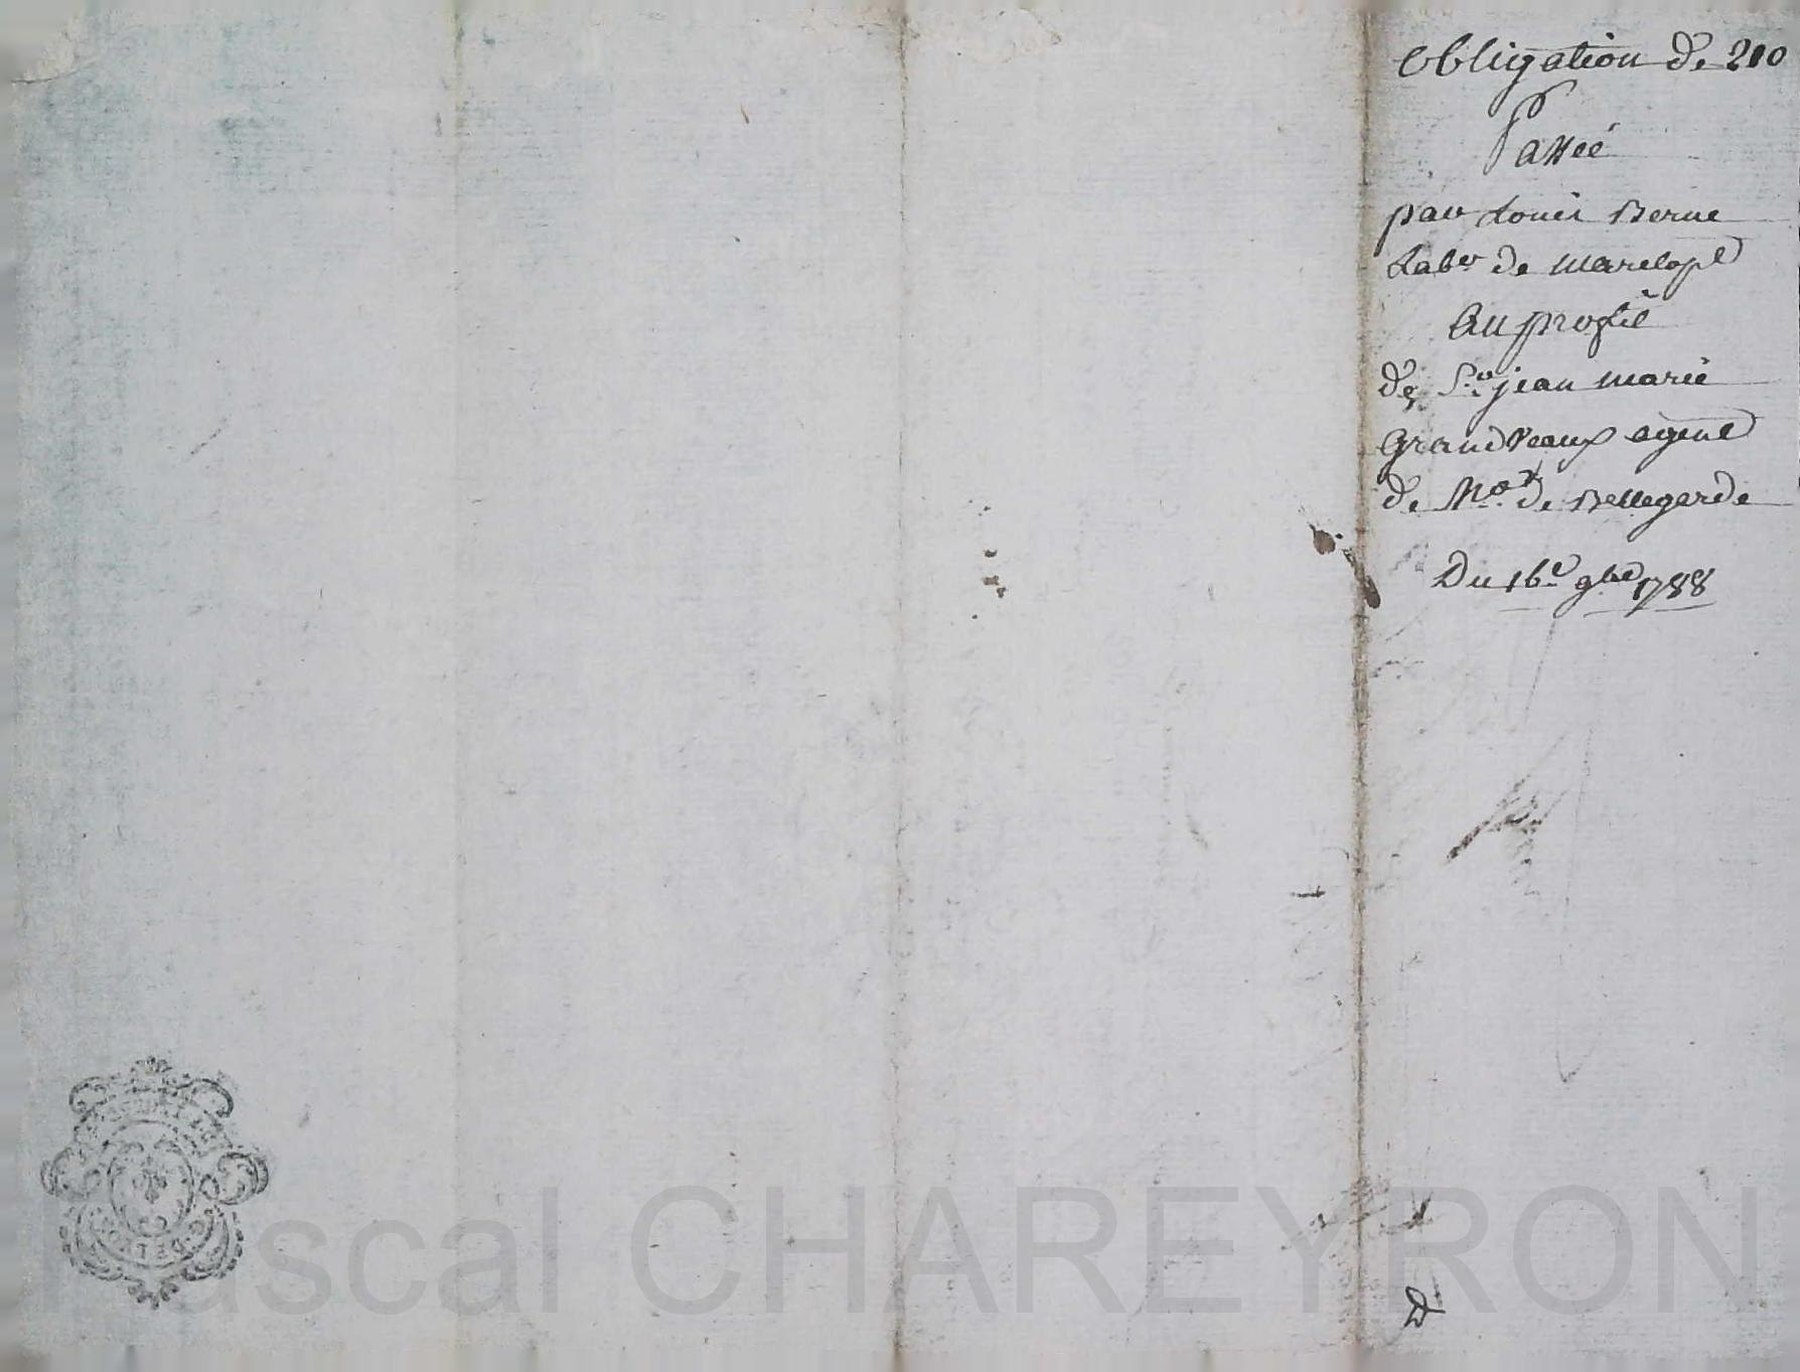 obligation de 210
Passée
par Louis Berne
Labr de Marclopt
Au profit
de Sr jean marie
Grandveaux agent
de Mr de Bellegarde
Du 16e 9bre 1788
Pascal CHAREYRON